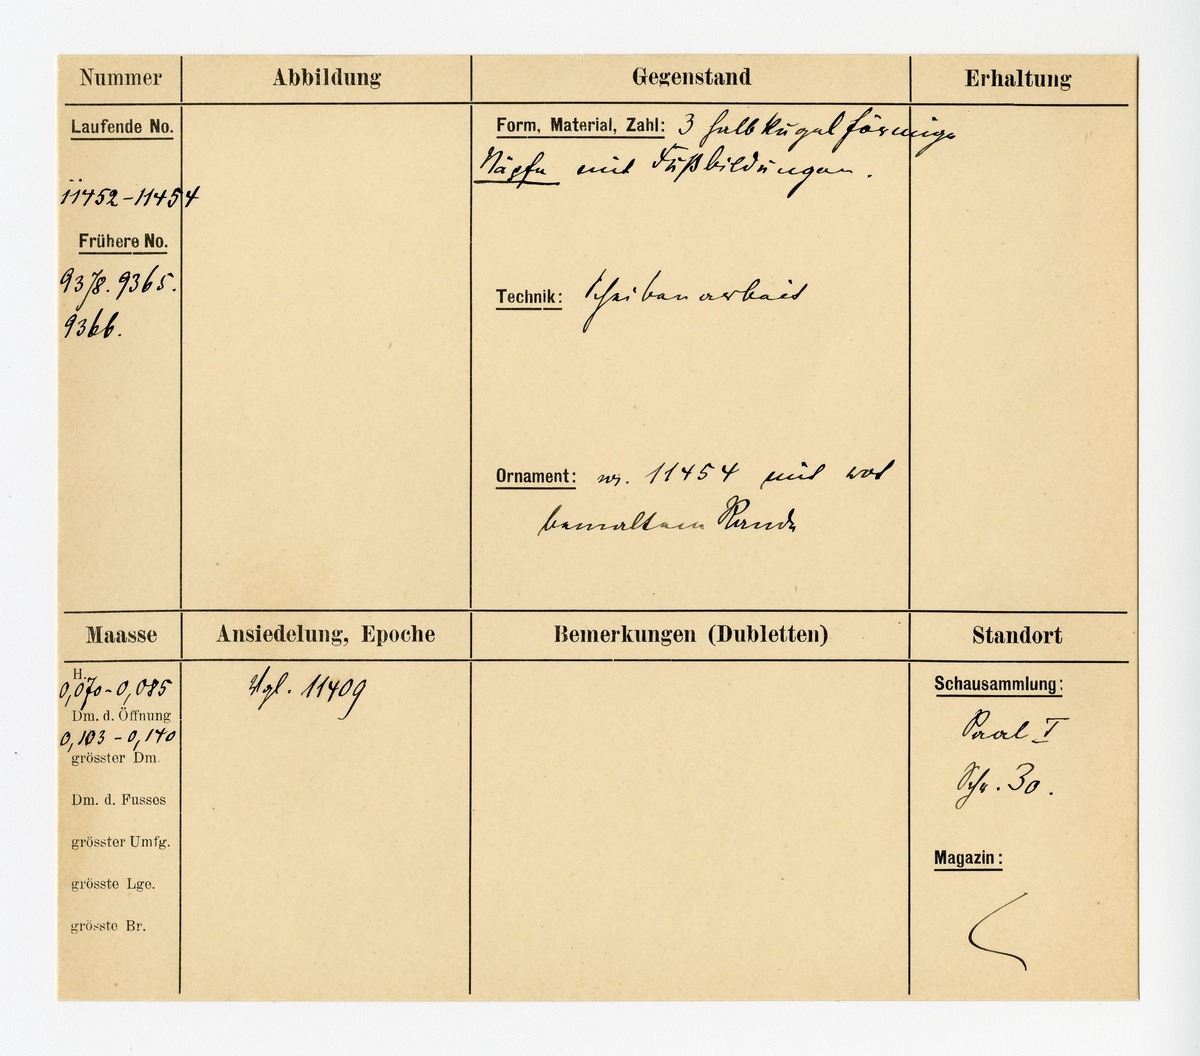 Nummer
Abbildung
Gegenstand
Erhaltung
Laufende No.
11452-11454
Frühere No.
9378. 9365.
9366.
Form, Material, Zahl: 3 halbkugelförmige
Näpfe mit Fußbildungen.
Technik: Scheibenarbeit
Ornament: nr. 11454 mit rot
bemaltem Rande
Maasse
Ansiedelung, Epoche
Bemerkungen (Dubletten)
Standort
H.
0,070-0,085
Dm. d. Öffnung
0,103-0,140
grösster Dm.
Dm. d. Fusses
grösster Umfg.
grösste Lge.
grösste Br.
Vgl. 11409
Schausammlung:
Saal I
Schr. 30.
Magazin: